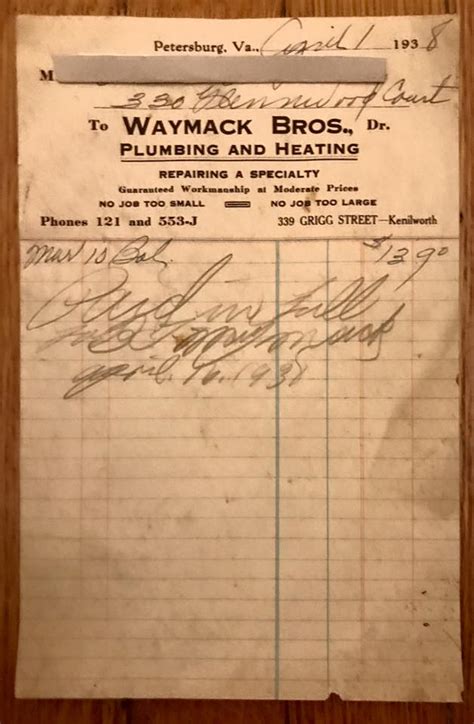 Petersburg, Va., April 1 1938
M
330 Glennwood Court
To WAYMACK BROS., Dr.
PLUMBING AND HEATING
REPAIRING A SPECIALTY
Guaranteed Workmanship at Moderate Prices
NO JOB TOO SMALL NO JOB TOO LARGE
Phones 121 and 553-J 339 GRIGG STREET—Kenilworth
Mar 10 Bal. $13.90
Paid in full
april 16. 1938